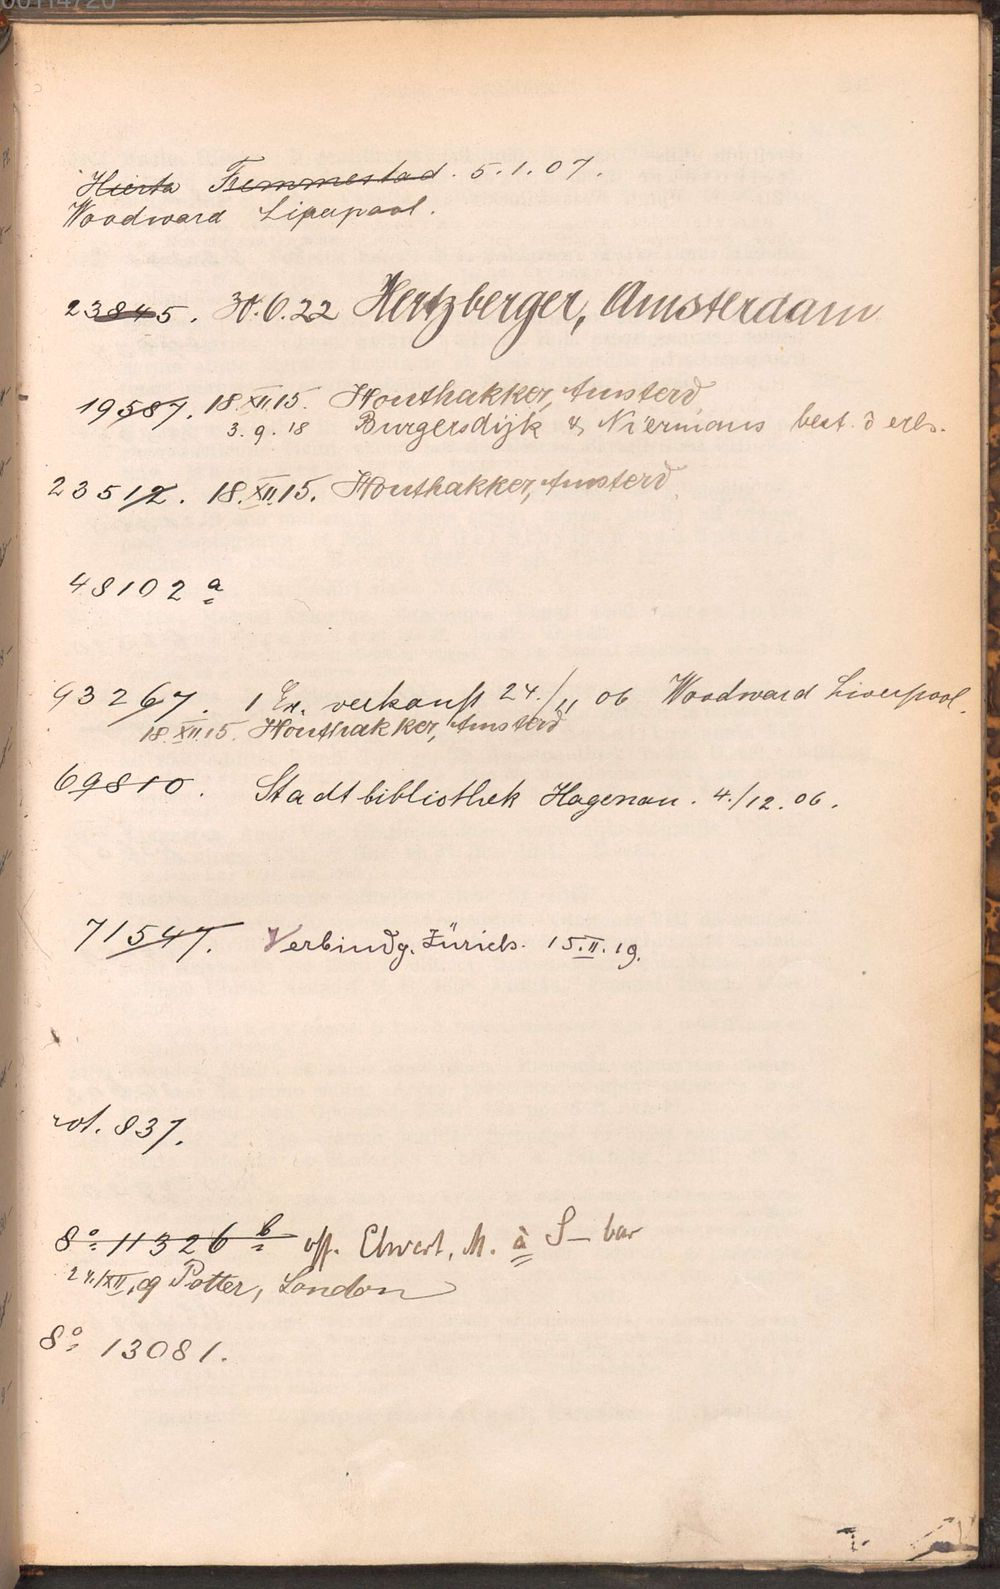 00114720
Hierta Femmestad. 5.1.07.
Woodward Liverpool.
23845. 30.6.22 Hertzberger, Amsterdam
19587. 18.XII.15. Houthakker, Amsterd
3.9.18 Burgersdijk & Niermans best. d erh.
23512. 18.XII.15. Houthakker, Amsterd
48102 a
93267. 1 Ex. verkauft 24./11 06 Woodward Liverpool.
18.XII.15. Houthakker, Amsterd
69810. Stadtbibliothek Hagenau. 4./12.06.
71547. Verbindg. Zürich. 15.II.19.
rot. 837.
8° 11326 b off. Elwert, M. à S— bar
24/XII.09 Potter, London
8° 13081.